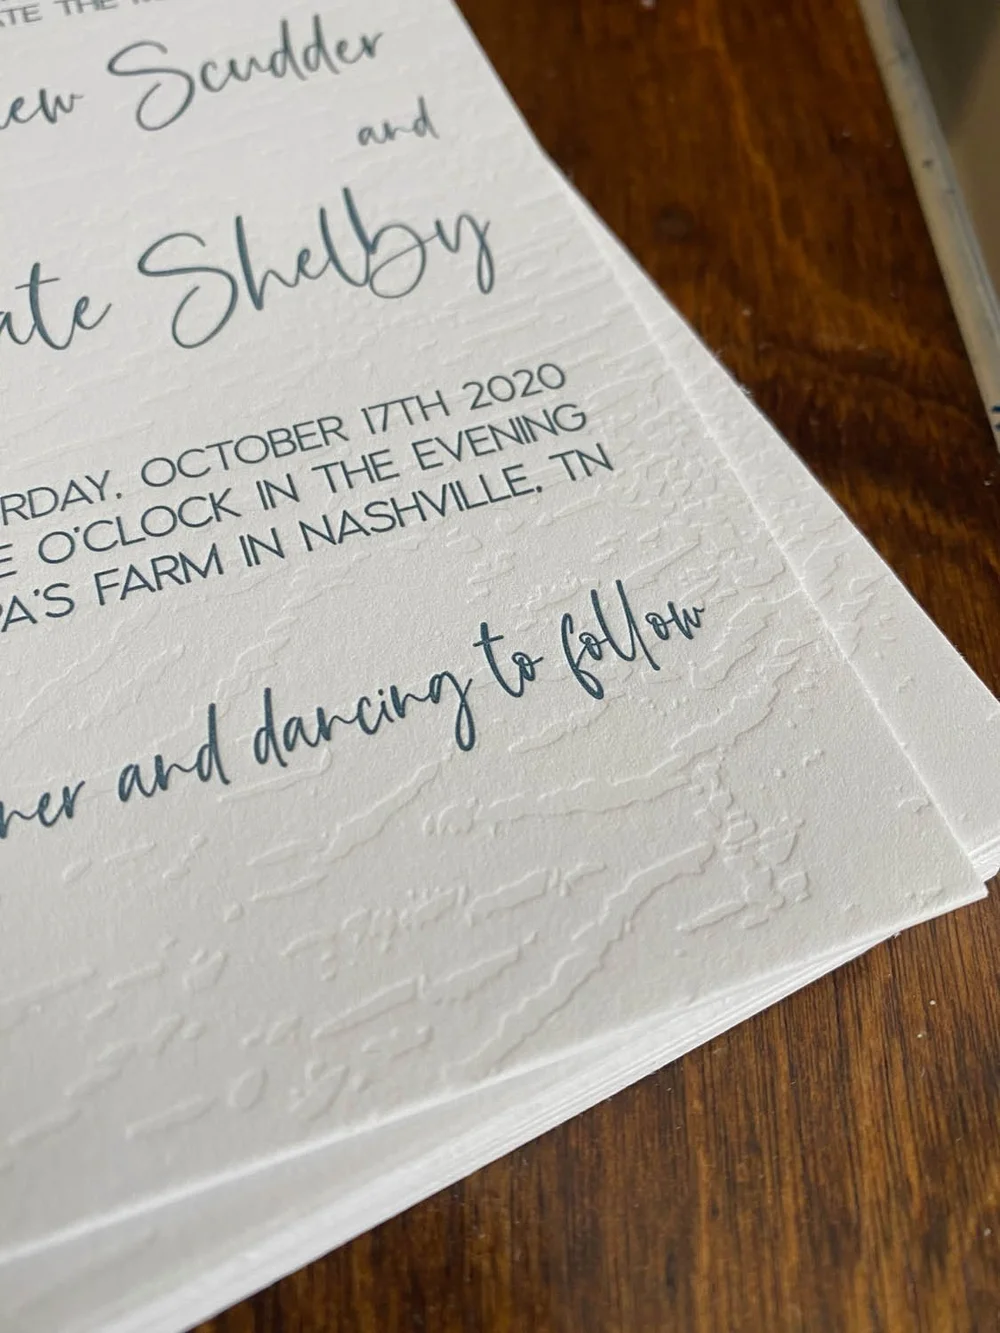 ATE THE
ew Scudder
and
ate Shelby
RDAY, OCTOBER 17TH 2020
E O'CLOCK IN THE EVENING
PA'S FARM IN NASHVILLE, TN
ner and dancing to follow